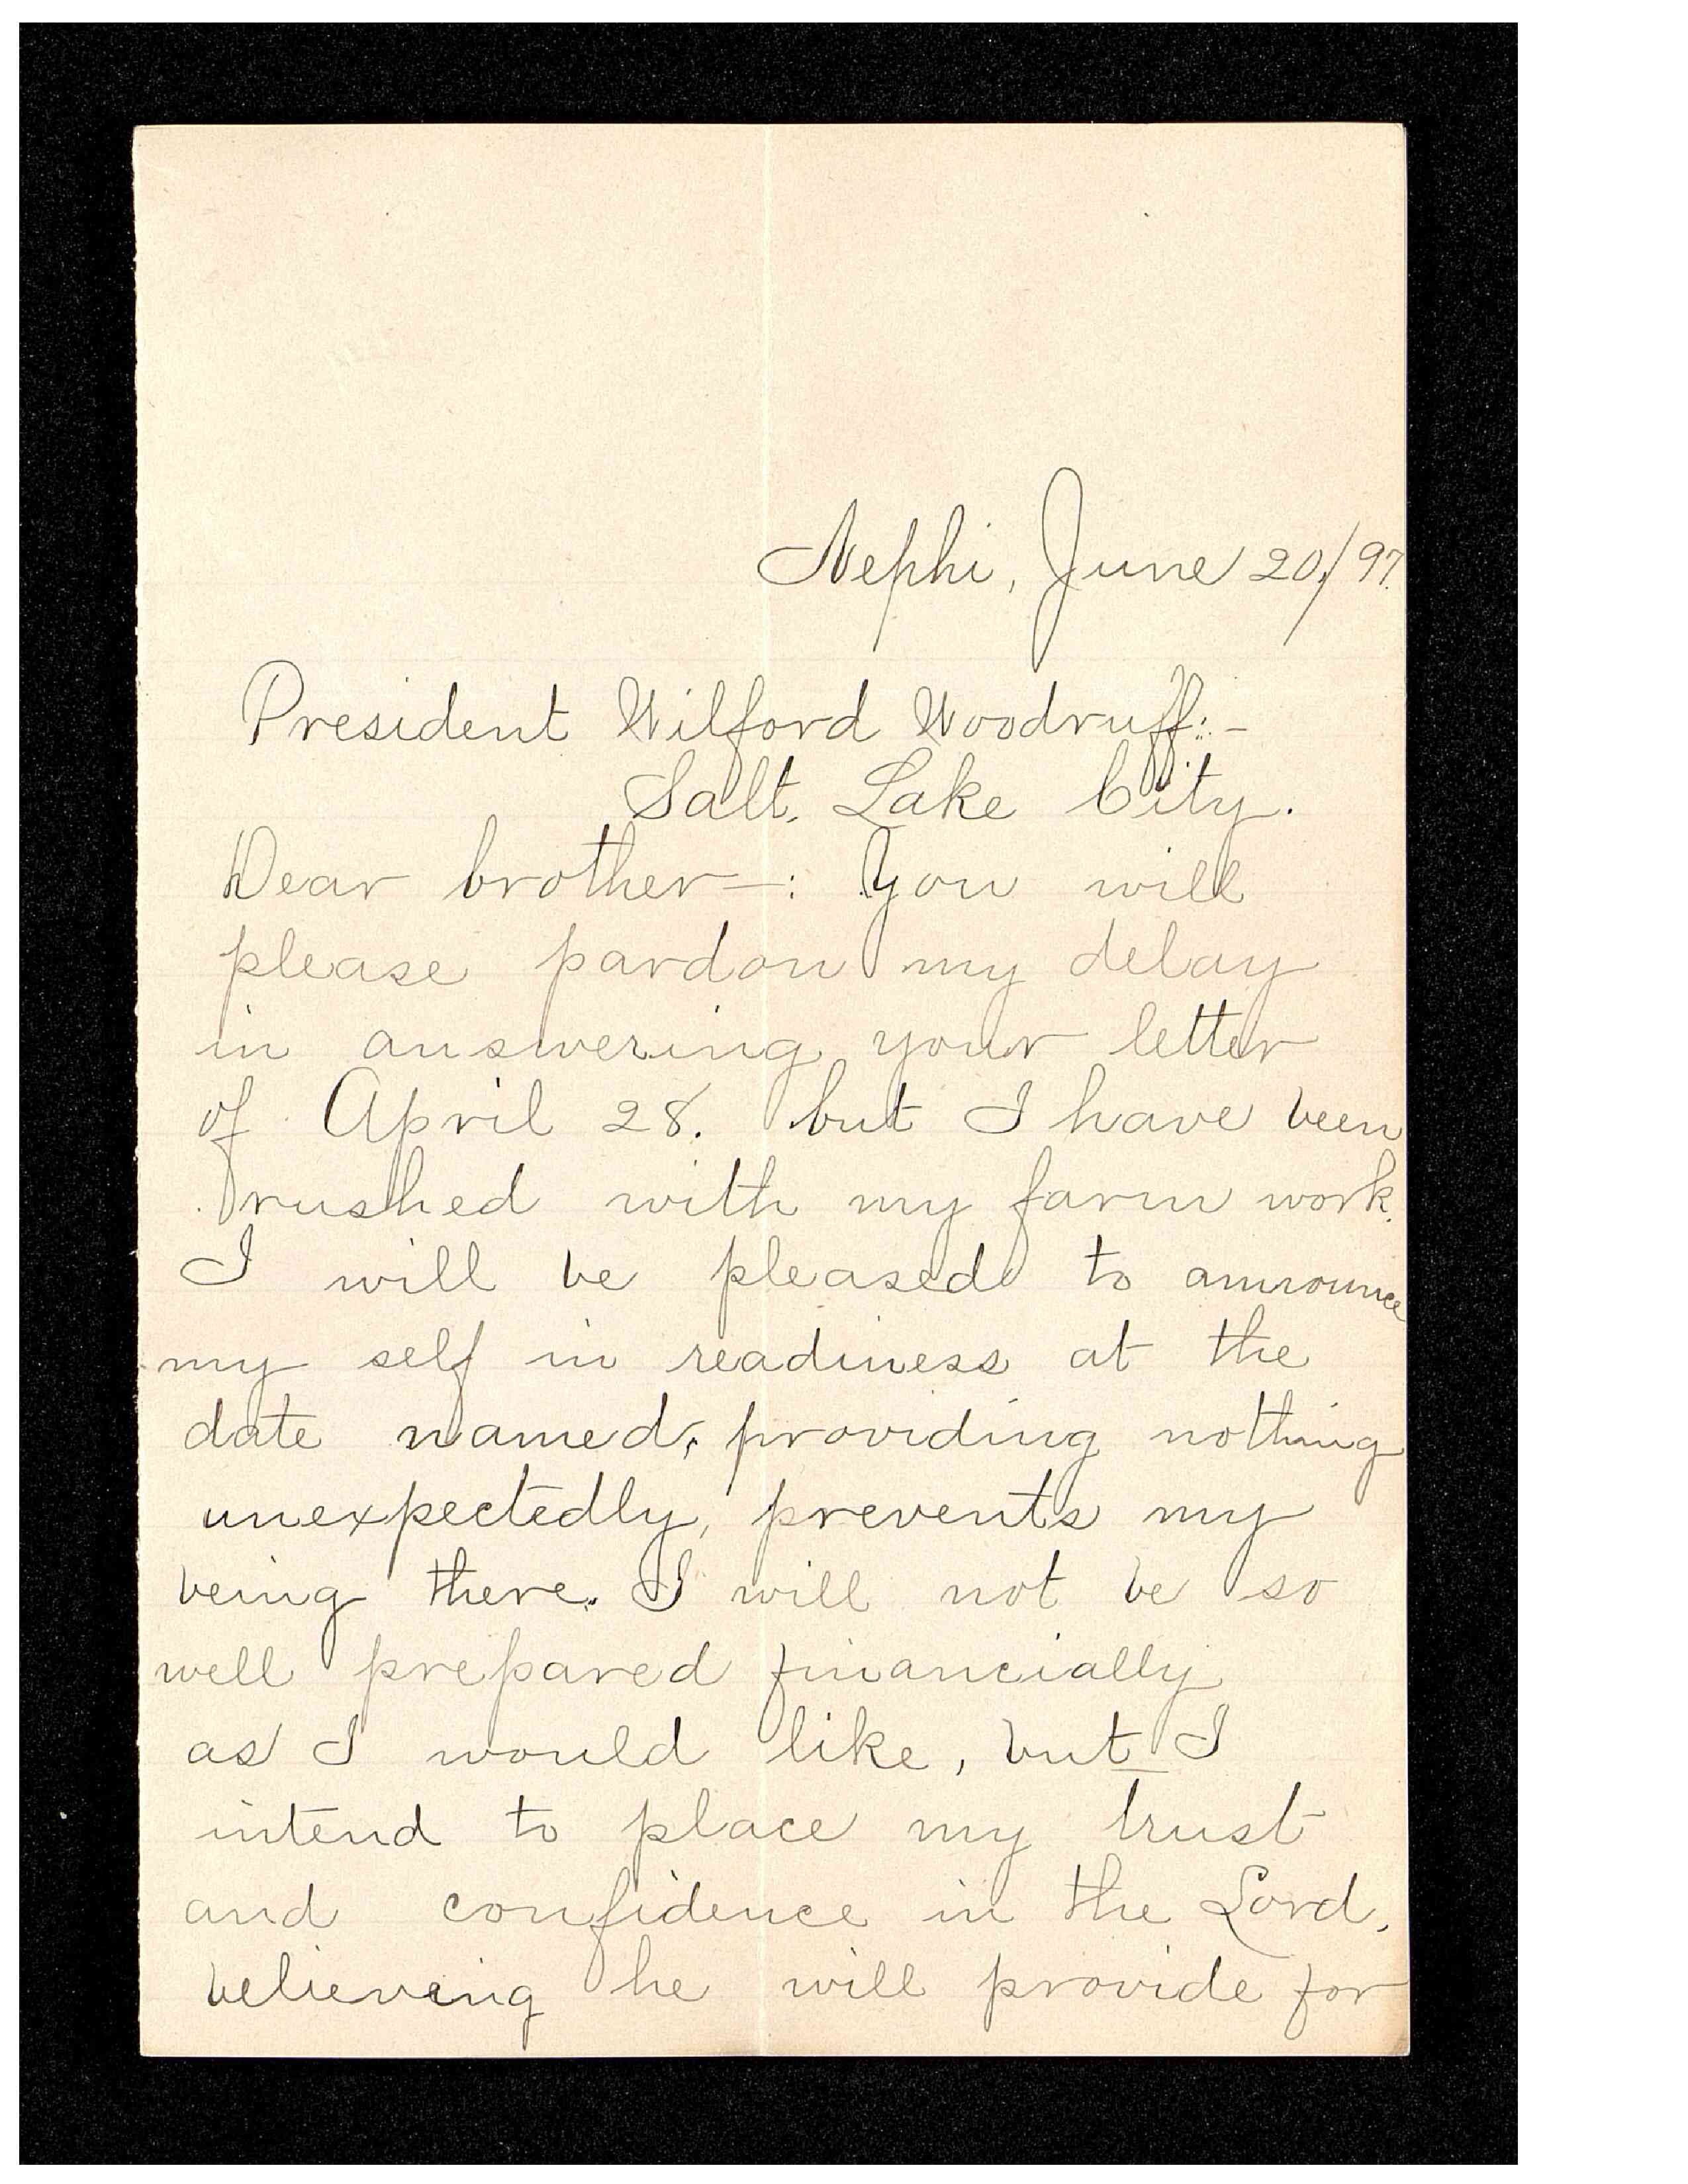 Nephi, June 20,/97.
President Wilford Woodruff:-
Salt, Lake City.
Dear brother-: You will
please pardon my delay
in answering your letter
of April 28. but I have been
rushed with my farm work.
I will be pleased to announce
my self in readiness at the
date named, providing nothing
unexpectedly, prevents my
being there. I will not be so
well prepared financially
as I would like, but I
intend to place my trust
and confidence in the Lord,
believeing he will provide for